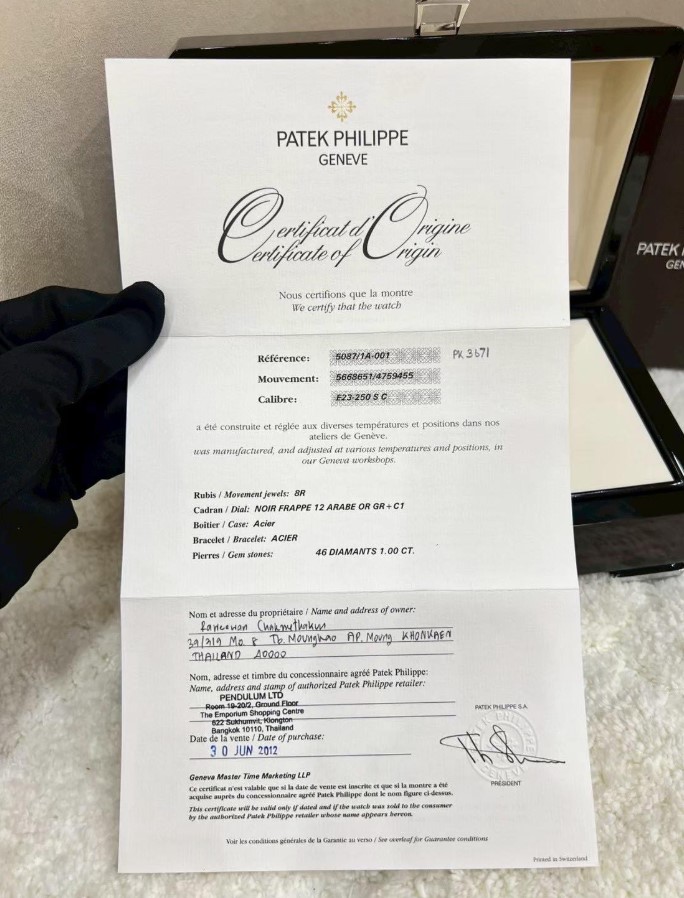 PATEK PHILIPPE
GENEVE
Certificat d'Origine
Certificate of Origin
Nous certifions que la montre
We certify that the watch
Référence: 5087/1A-001 PK 3671
Mouvement: 5668651/4759455
Calibre: E23-250 S C
a été construite et réglée aux diverses températures et positions dans nos
ateliers de Genève.
was manufactured, and adjusted at various temperatures and positions, in
our Geneva workshops.
Rubis / Movement jewels: 8R
Cadran / Dial: NOIR FRAPPE 12 ARABE OR GR+C1
Boîtier / Case: Acier
Bracelet / Bracelet: ACIER
Pierres / Gem stones: 46 DIAMANTS 1.00 CT.
Nom et adresse du propriétaire / Name and address of owner:
39/319 Mo. 8 Tb. AP. KHONKAEN
THAILAND 40000
Nom, adresse et timbre du concessionnaire agréé Patek Philippe:
Name, address and stamp of authorized Patek Philippe retailer:
PENDULUM LTD
Room 19-20/2, Ground Floor
The Emporium Shopping Centre
622 Sukhumvit, Klongton
Bangkok 10110, Thailand
Date de la vente / Date of purchase:
30 JUN 2012
PATEK PHILIPPE S.A.
PRÉSIDENT
Geneva Master Time Marketing LLP
Ce certificat n'est valable que si la date de vente est inscrite et que si la montre a été
acquise auprès du concessionnaire agréé Patek Philippe dont le nom figure ci-dessus.
This certificate will be valid only if dated and if the watch was sold to the consumer
by the authorized Patek Philippe retailer whose name appears hereon.
Voir les conditions générales de la Garantie au verso / See overleaf for Guarantee conditions
Printed in Switzerland
PATEK
GEN